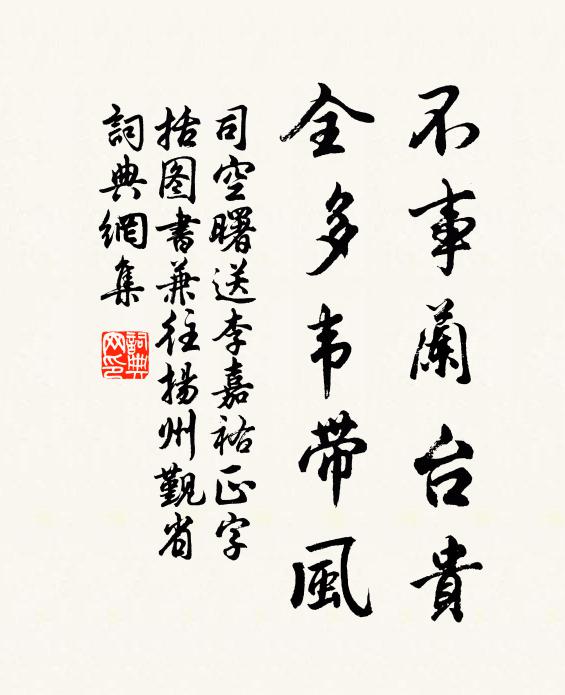 不事蘭台貴
全多韦帶風
司空曙送李嘉祐正字
括图書兼往揚州觐省
詞典網集
詞典网印